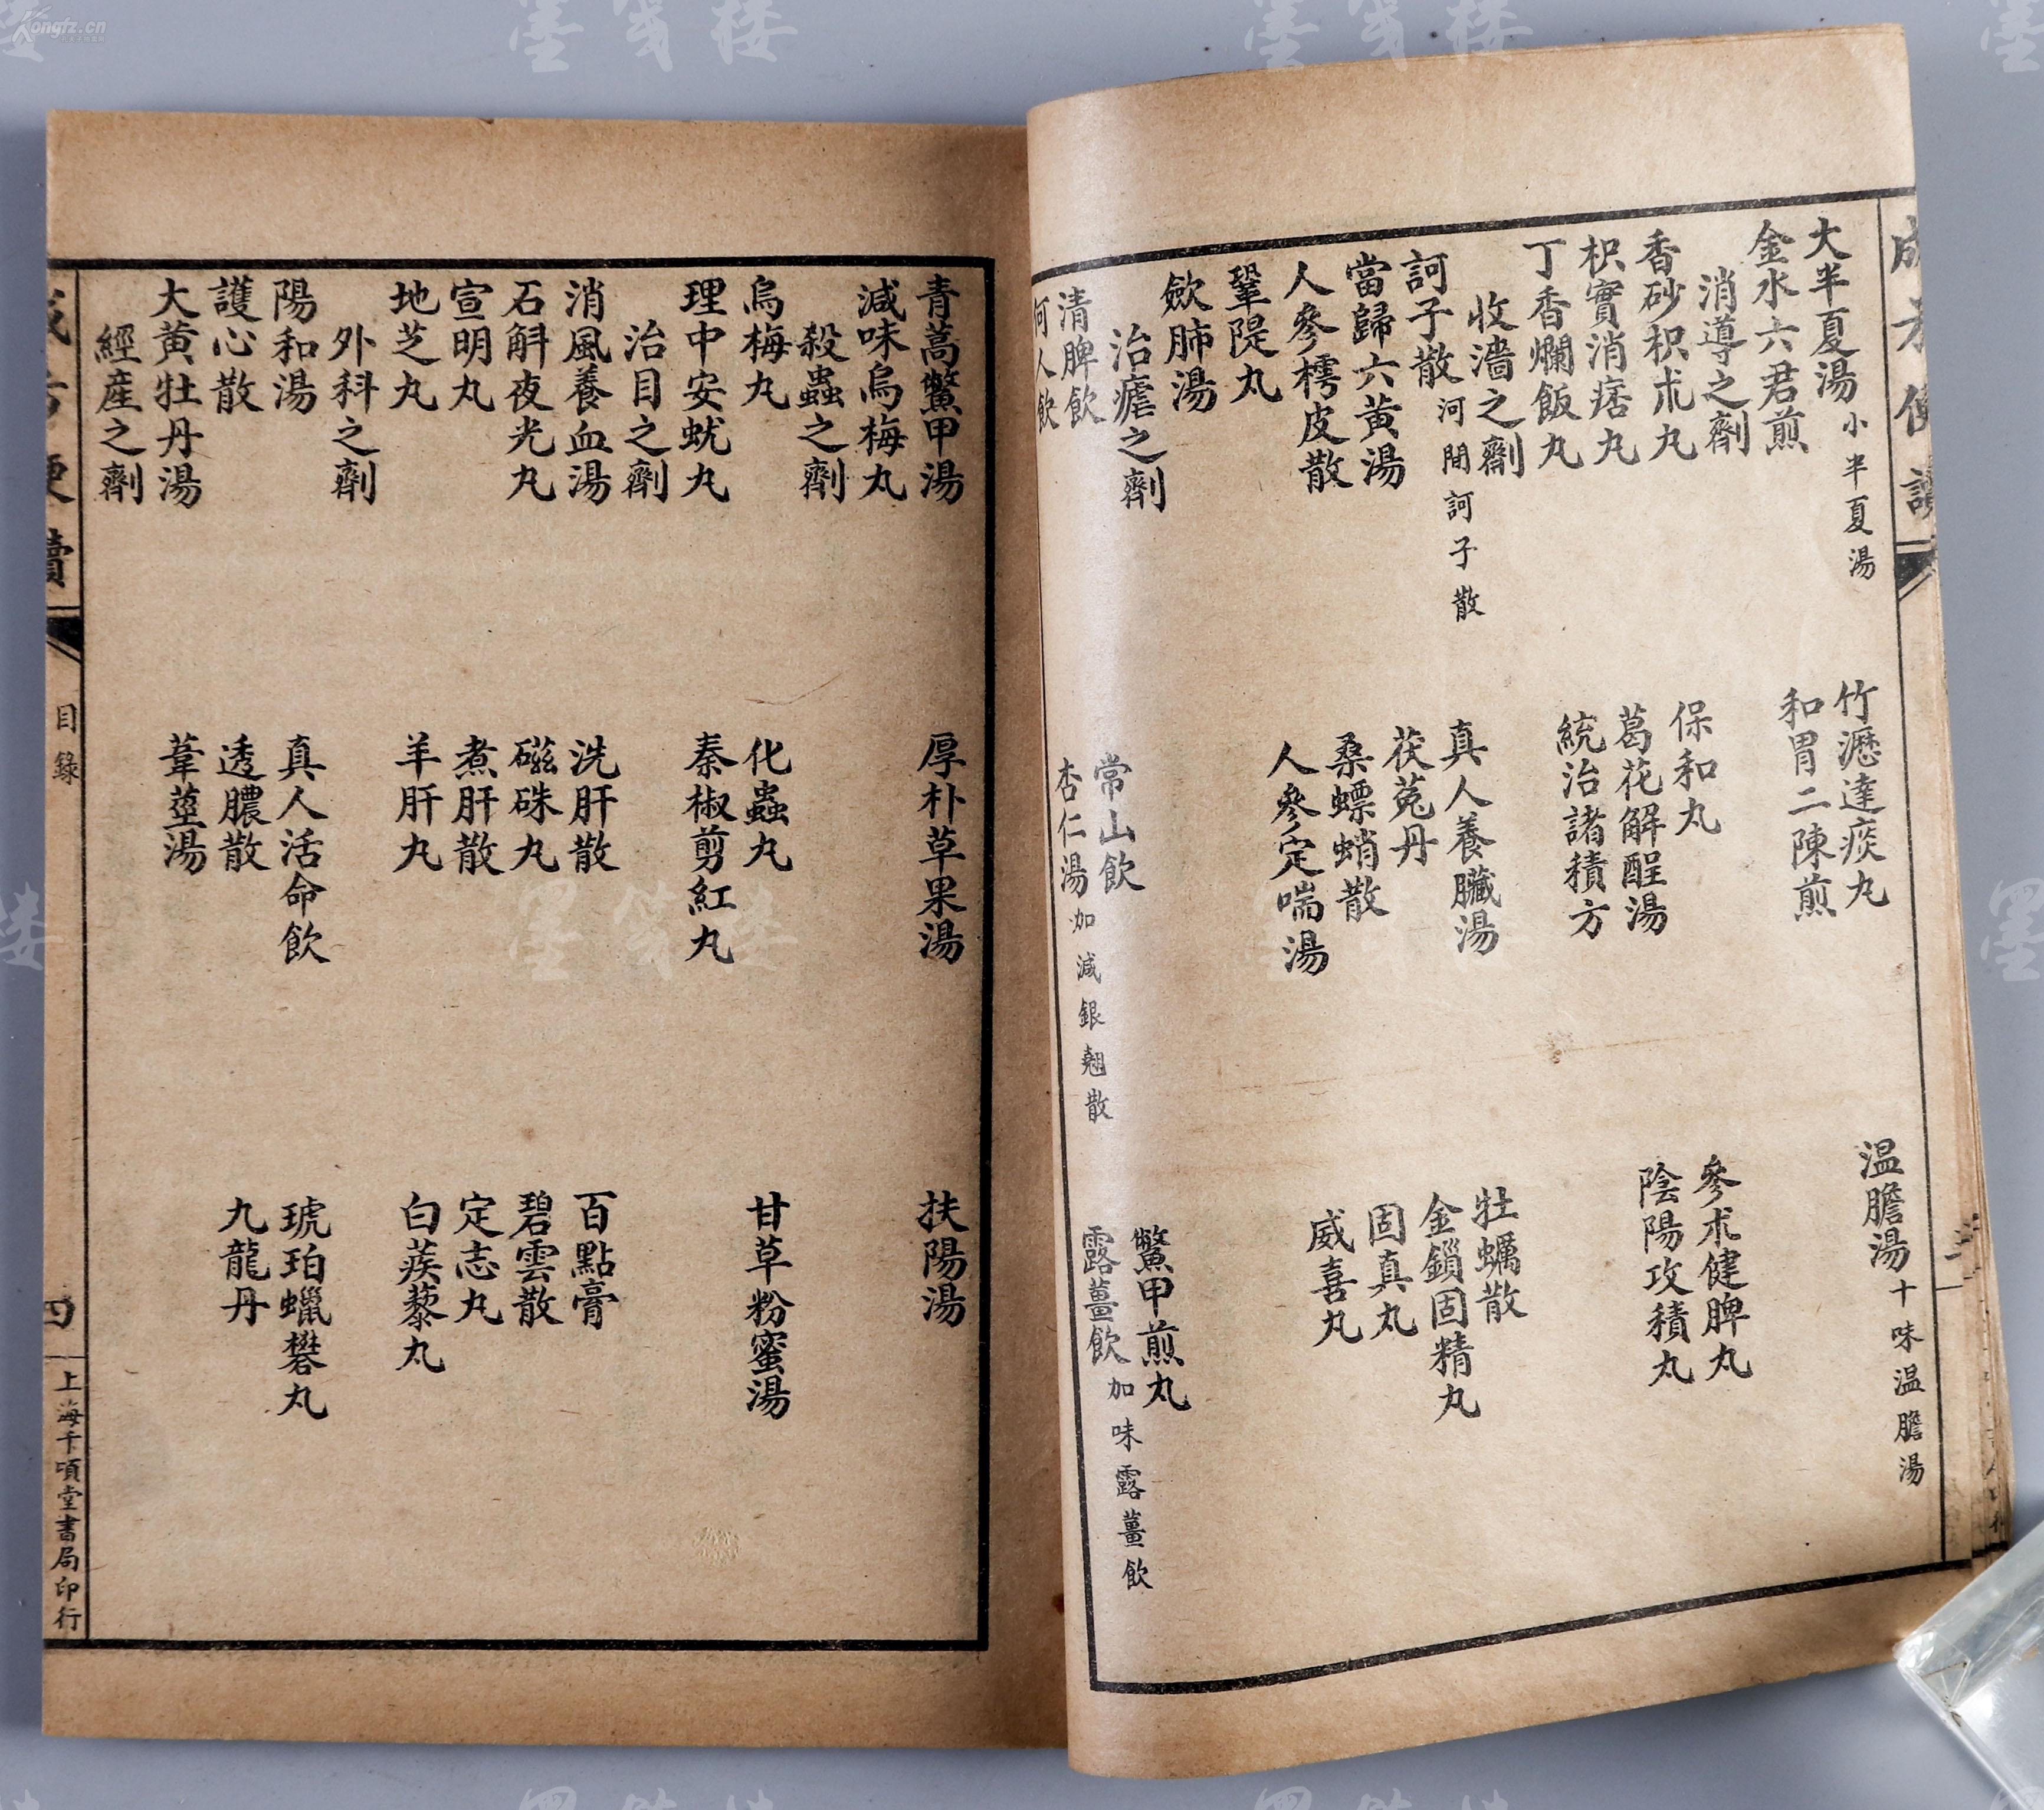 成方便讀
大半夏湯 小半夏湯 竹瀝達痰丸 温膽湯 十味温膽湯
金水六君煎 和胃二陳煎
消導之劑
香砂枳朮丸 保和丸 參朮健脾丸
枳實消痞丸 葛花解酲湯 陰陽攻積丸
丁香爛飯丸 統治諸積方
收濇之劑
訶子散 河間訶子散 真人養臟湯 牡蠣散
當歸六黃湯 茯菟丹 金鎖固精丸
人參樗皮散 桑螵蛸散 固真丸
鞏隄丸 人參定喘湯 威喜丸
斂肺湯
治瘧之劑
清脾飲 常山飲 鱉甲煎丸
何人飲 杏仁湯 加減銀翹散 露薑飲 加味露薑飲
青蒿鱉甲湯 厚朴草果湯 扶陽湯
減味烏梅丸
殺蟲之劑
烏梅丸 化蟲丸 甘草粉蜜湯
理中安蚘丸 秦椒剪紅丸
治目之劑
消風養血湯 洗肝散 百點膏
石斛夜光丸 磁硃丸 碧雲散
宣明丸 煮肝散 定志丸
地芝丸 羊肝丸 白蒺藜丸
外科之劑
陽和湯 真人活命飲 琥珀蠟礬丸
護心散 透膿散 九龍丹
大黃牡丹湯 葦莖湯
經產之劑
成方便讀 目錄 四 上海千頃堂書局印行
kongfz.cn
墨笺楼